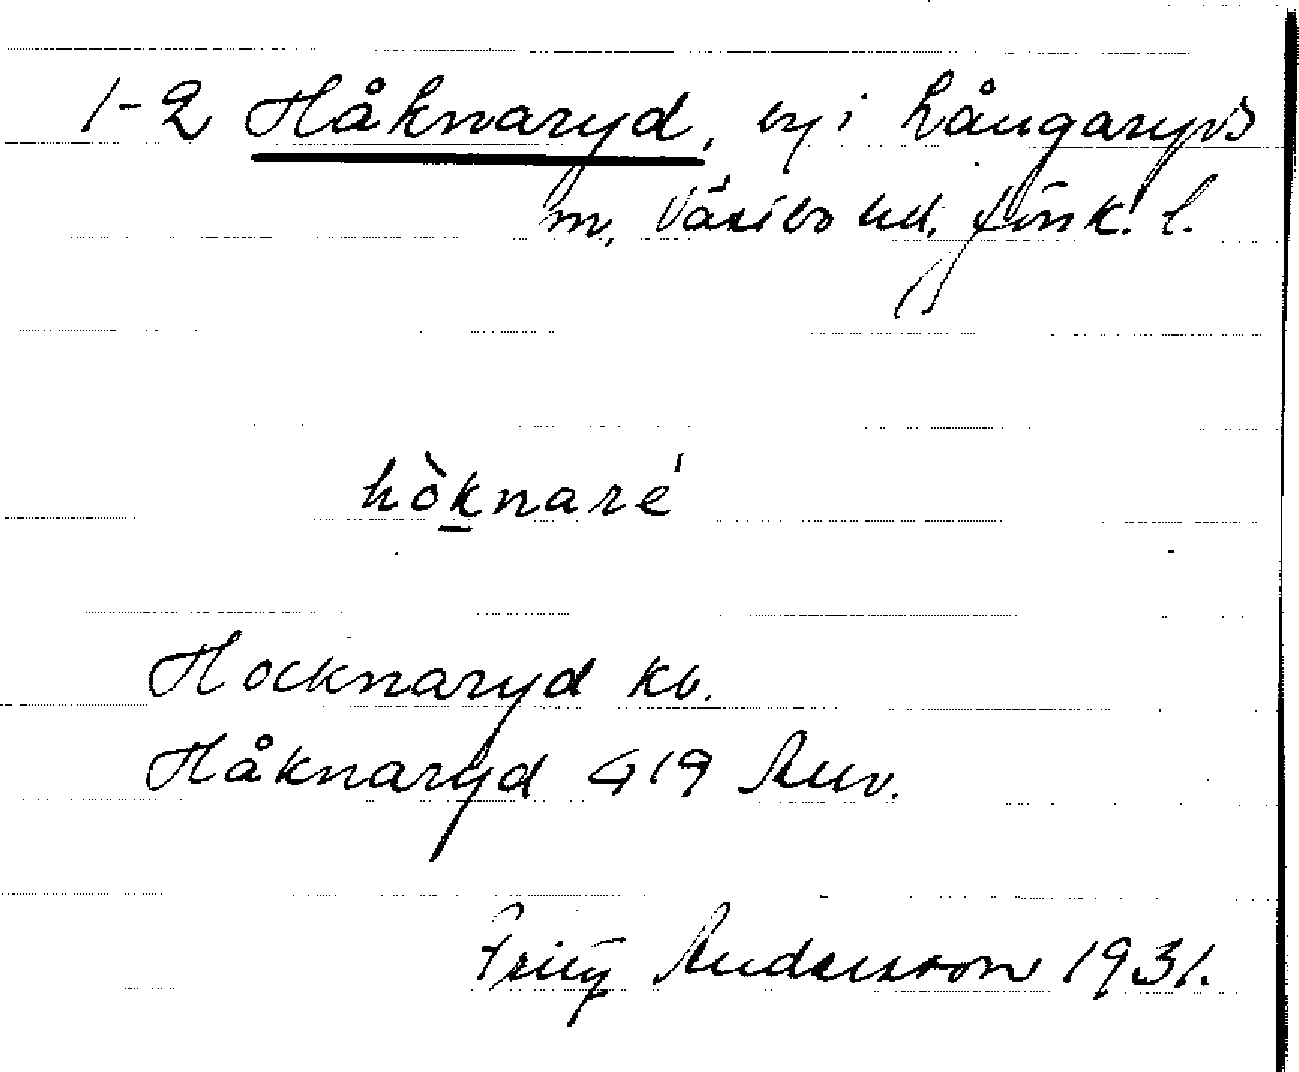 1-2 Håknaryd, by i Långaryds
sn, Västbo hd, Jönk. l.
hòknaré
Hocknaryd kb.
Håknaryd 419 Auv.
Fritz Andersson 1931.